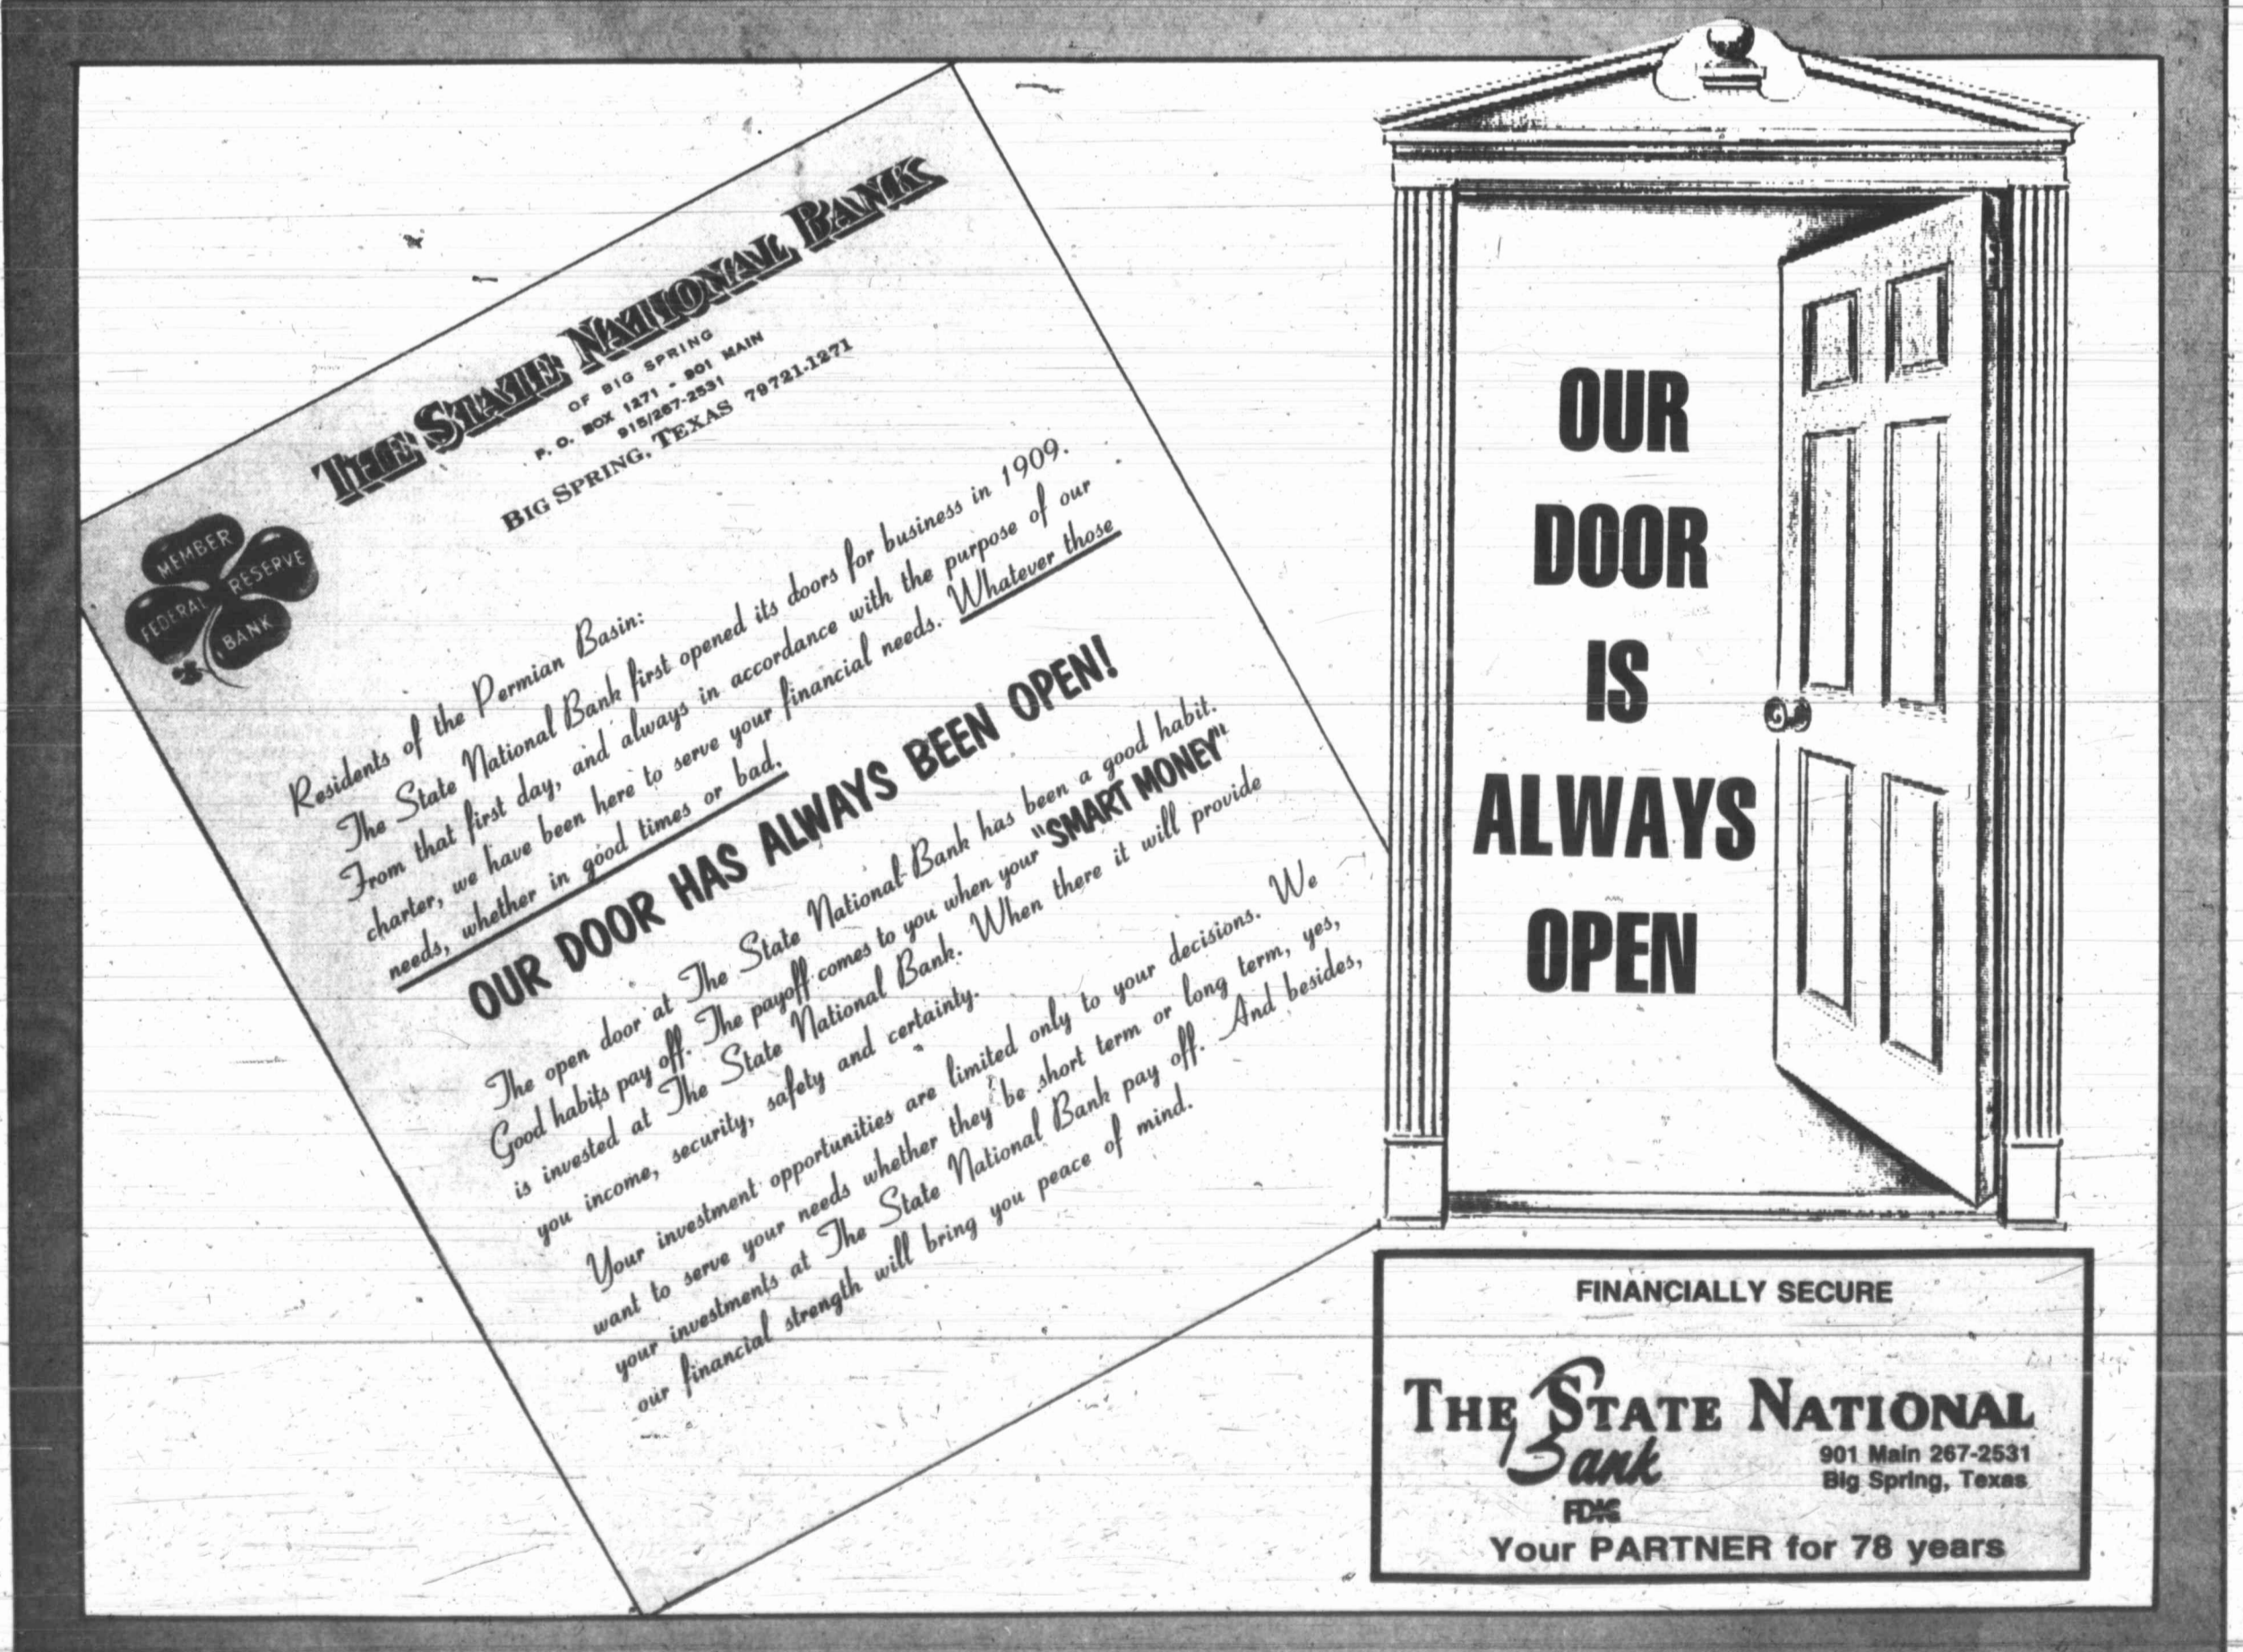 THE STATE NATIONAL BANK
OF BIG SPRING
P. O. BOX 1271 - 901 MAIN
915/267-2531
BIG SPRING, TEXAS 79721-1271
MEMBER
FEDERAL RESERVE
BANK
Residents of the Permian Basin:
The State National Bank first opened its doors for business in 1909.
From that first day, and always in accordance with the purpose of our
charter, we have been here to serve your financial needs. Whatever those
needs, whether in good times or bad.
OUR DOOR HAS ALWAYS BEEN OPEN!
The open door at The State National Bank has been a good habit.
Good habits pay off. The payoff comes to you when your "SMART MONEY"
is invested at The State National Bank. When there it will provide
you income, security, safety and certainty.
Your investment opportunities are limited only to your decisions. We
want to serve your needs whether they be short term or long term, yes,
your investments at The State National Bank pay off. And besides,
our financial strength will bring you peace of mind.
OUR
DOOR
IS
ALWAYS
OPEN
FINANCIALLY SECURE
THE STATE NATIONAL
Bank
901 Main 267-2531
Big Spring, Texas
FDIC
Your PARTNER for 78 years